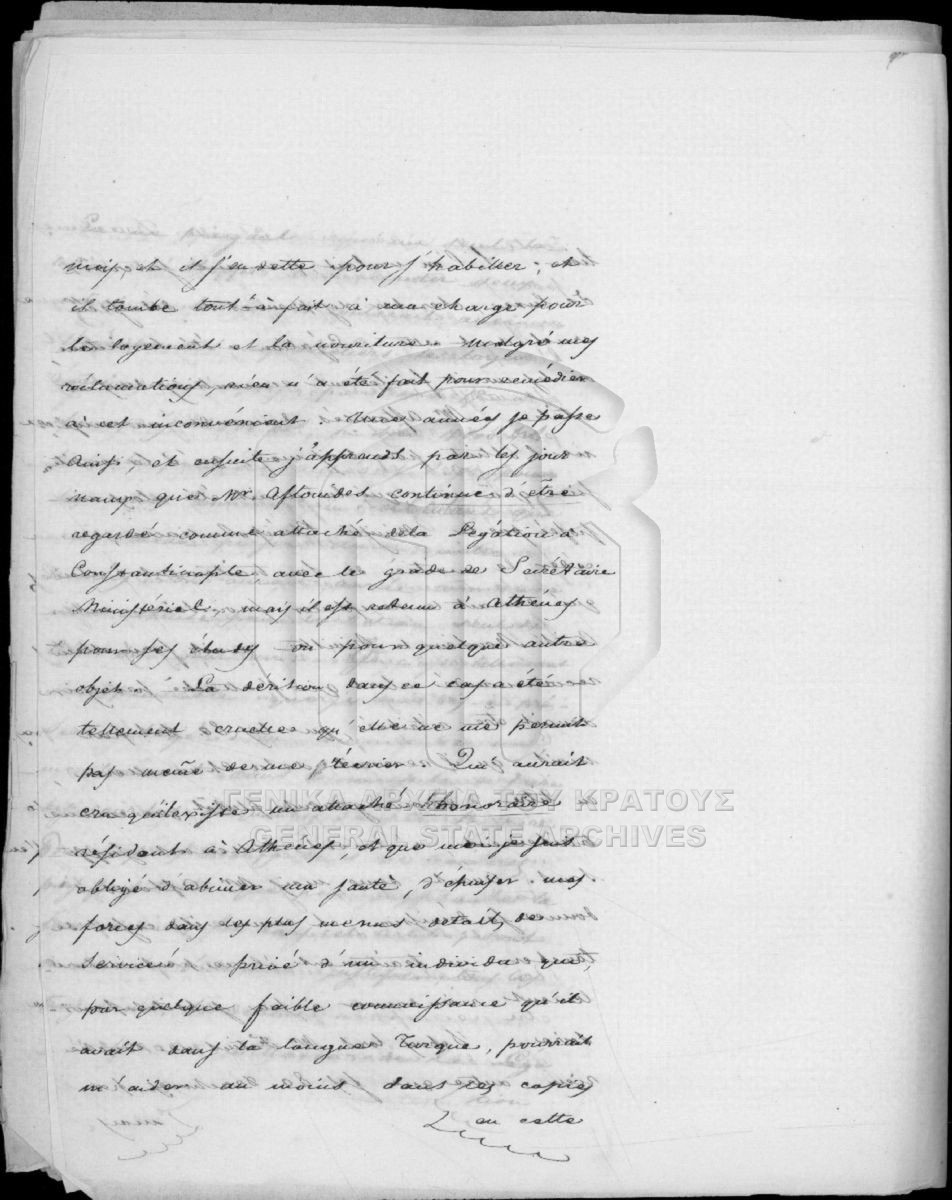 mois, et il s'endette pour s'habiller; et
il tombe tout-à-fait à ma charge pour
le logement et la nouriture. Malgré mes
réclamations, rien n'a été fait pour remédier
à cet inconvénient. Une années se passe
ainsi, et ensuite j'apprends par les jour
naux que Mr. Aftonides continue d'être
regardé comme attaché dela Légation à
Constantinople avec le grade de Secrétaire
Ministériel, mais il est retenu à Athenes
pour ses études ou pour quelque autre
objet. La dérision dans ce cas a été
tellement cruelle qu'elle ne me permit
pas même de me récrier. Qui aurait
cru qu'il existe un attaché honoraire
résident à Athenes, et que moi je suis
obligé d'abimer ma santé, d'épuiser mes
forces dans les plus menus détails de
service privé d'un individu que,
pour quelque faible connaissance qu'il
avait dans la langue Turque, pourrait
m'aider au moins dans les copies
en cette
ΓΕΝΙΚΑ ΑΡΧΕΙΑ ΤΟΥ ΚΡΑΤΟΥΣ
GENERAL STATE ARCHIVES